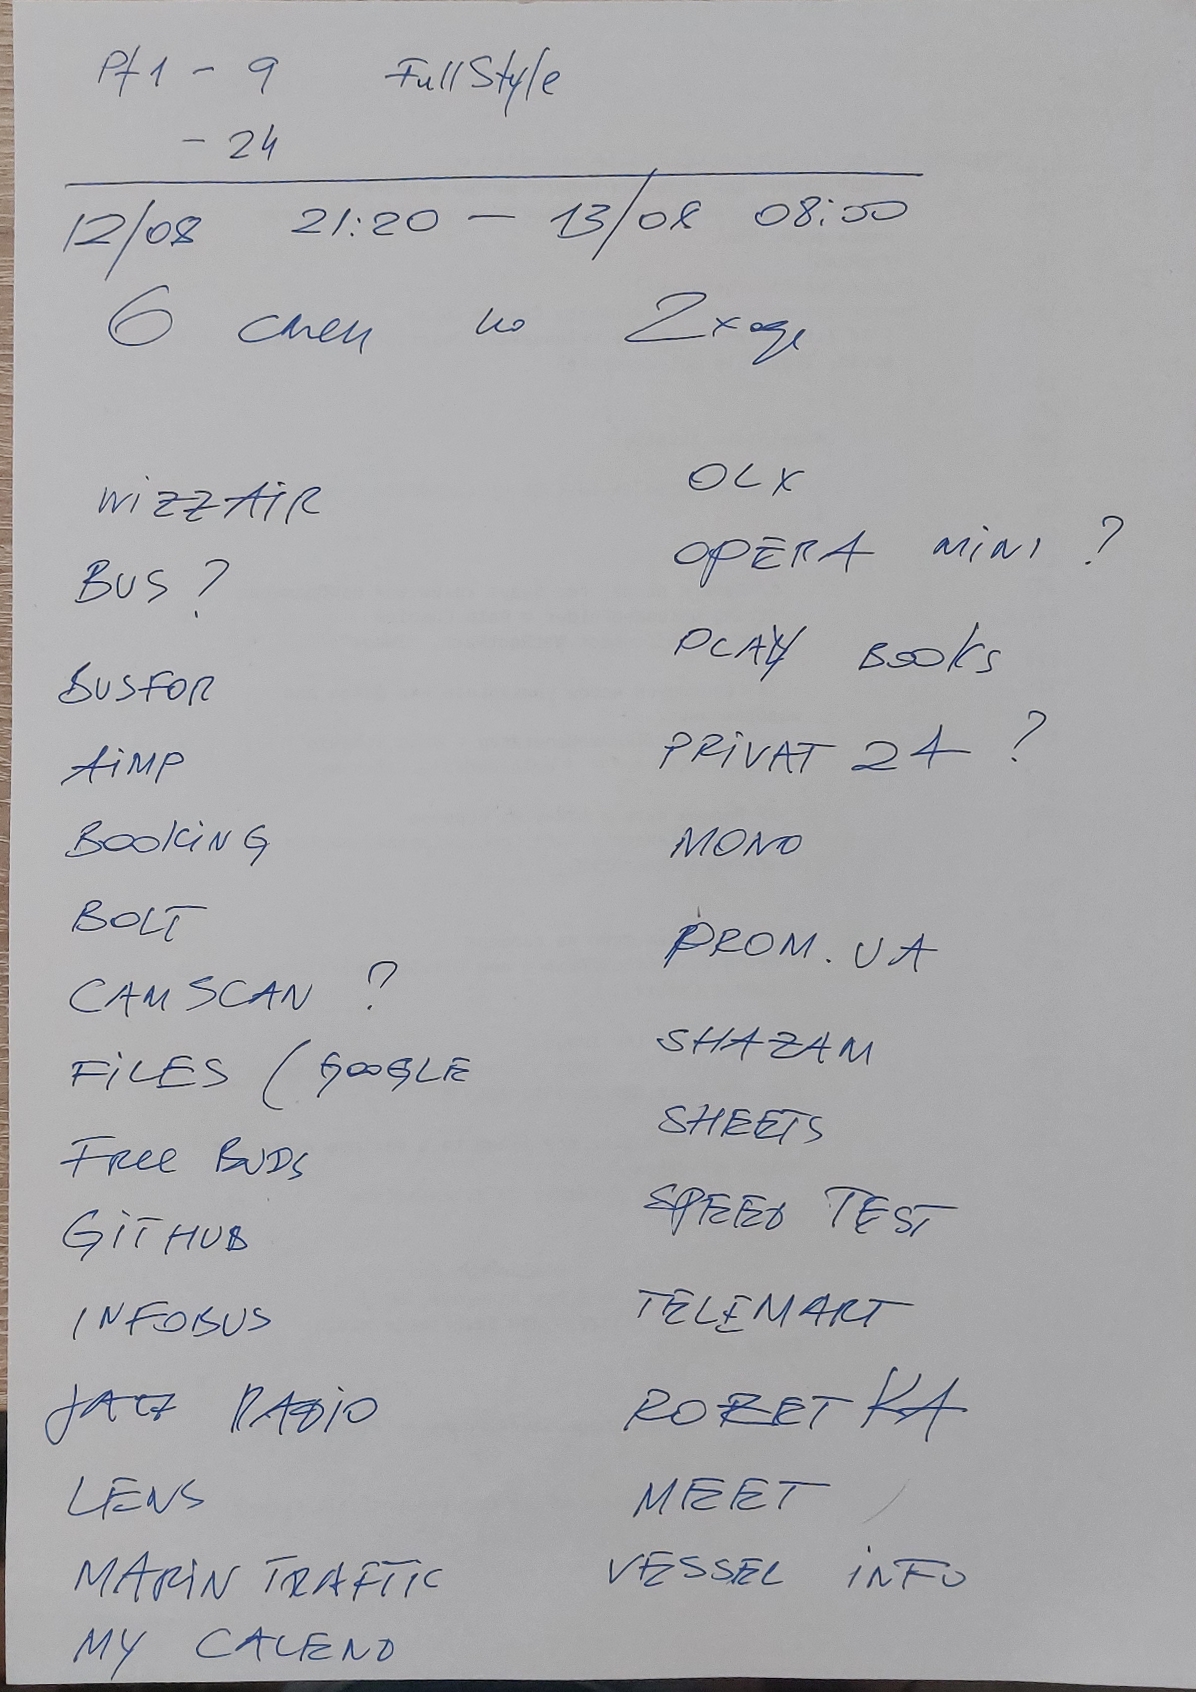 Pt1 - 9 FullStyle
- 24
12/08 21:20 — 13/08 08:00
6 смен по 2
WIZZAIR
BUS ?
BUSFOR
AiMP
BOOKiNG
BOLT
CAMSCAN ?
FiLES (GOOGLE
Free BUDS
GiTHUB
INFOBUS
JAZZ RADiO
LENS
MARiN TRAFFIC
MY CALEND
OLX
OPERA MiNi ?
PLAY BOOKS
PRiVAT 24 ?
MONO
PROM.UA
SHAZAM
SHEETS
SPEED TEST
TELEMART
ROZETKA
MEET
VESSEL iNFO